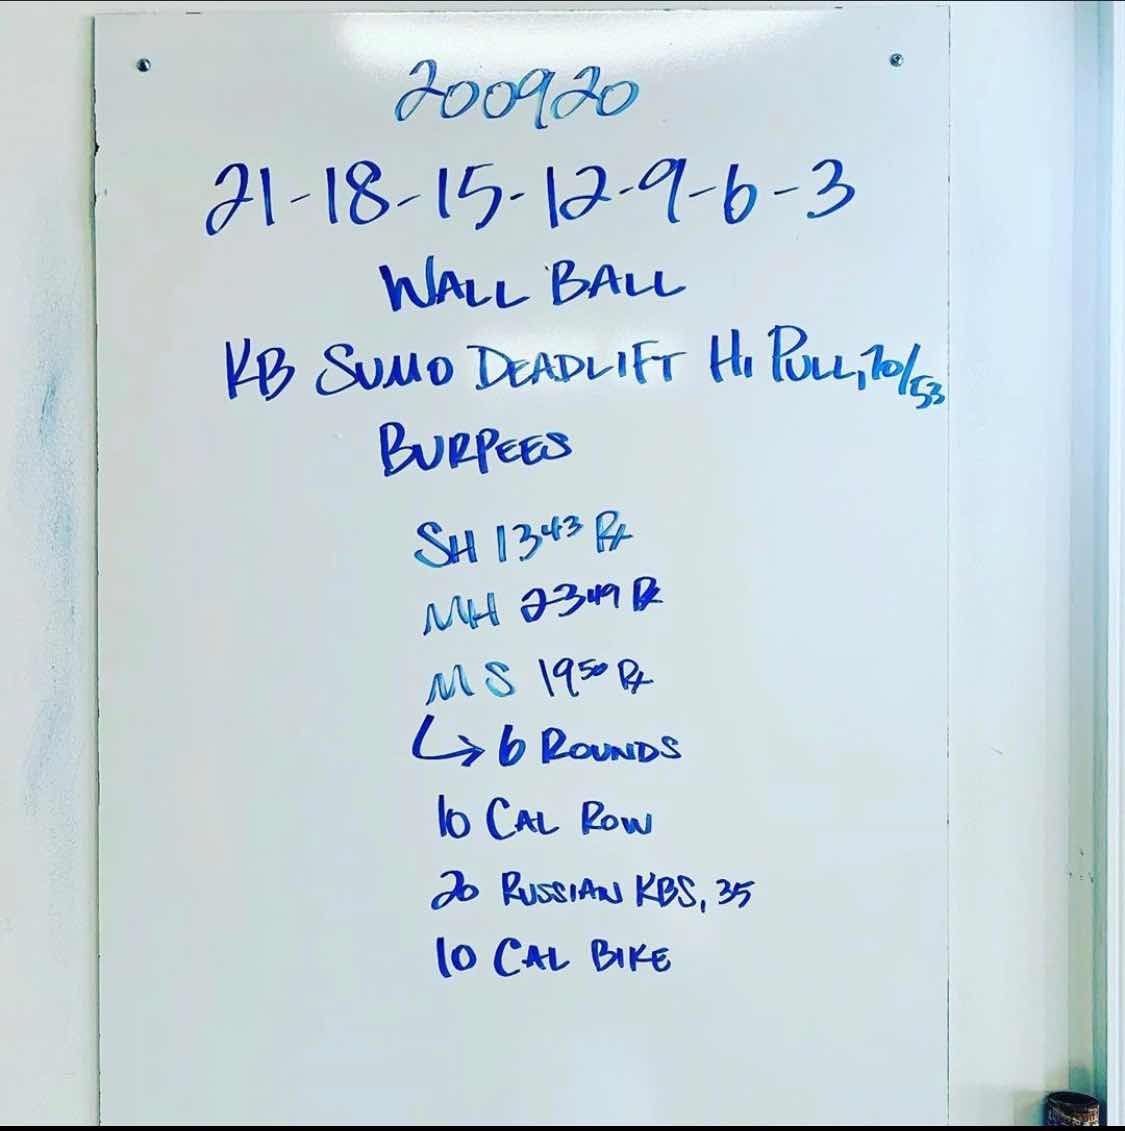 200920
21-18-15-12-9-6-3
WALL BALL
KB SUMO DEADLIFT HI PULL, 70/53
BURPEES
SH 1343 Rx
MH 2349 Rx
MS 1950 Rx
↳ 6 ROUNDS
10 CAL ROW
20 RUSSIAN KBS, 35
10 CAL BIKE